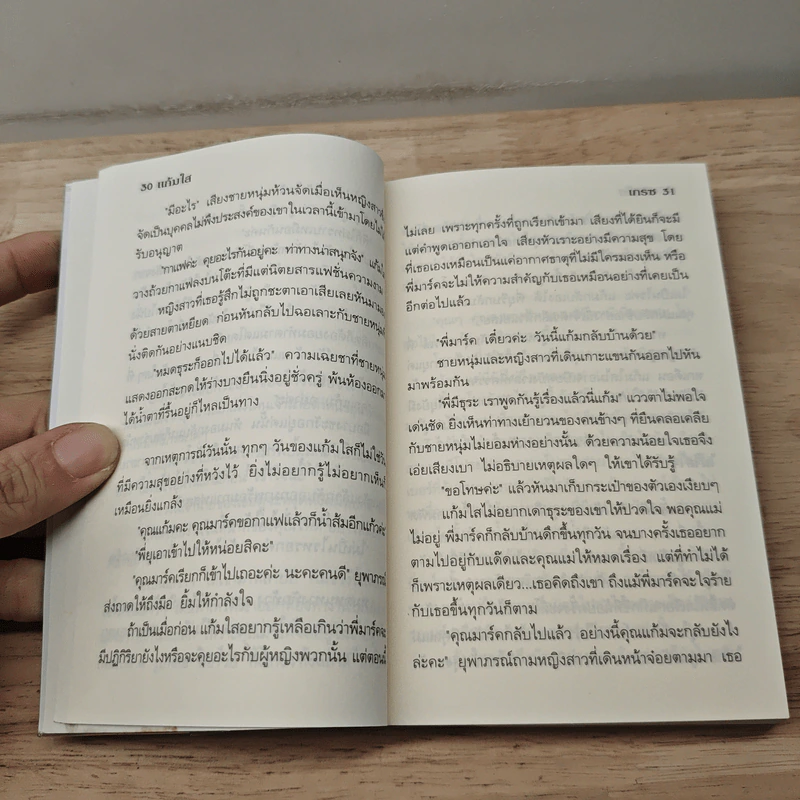 30 แก้มใส
"มีอะไร" เสียงชายหนุ่มห้วนจัดเมื่อเห็นหญิงสาว
จัดเป็นบุคคลไม่พึงประสงค์ของเขาในเวลานี้เข้ามาโดยไม่
รับอนุญาต
"กาแฟค่ะ คุยอะไรกันอยู่คะ ท่าทางน่าสนุกจัง"
วางถ้วยกาแฟลงบนโต๊ะที่มีแต่นิตยสารแฟชั่นความงาม
หญิงสาวที่เธอรู้สึกไม่ถูกชะตาเอาเสียเลยหันมา
ด้วยสายตาเหยียด ก่อนหันกลับไปฉอเลาะกับชายหนุ่ม
นั่งติดกันอย่างแนบชิด
"หมดธุระก็ออกไปได้แล้ว" ความเฉยชาที่ชายหนุ่ม
แสดงออกสะกดให้ร่างบางยืนนิ่งอยู่ชั่วครู่ พ้นห้องออกมา
ได้น้ำตาที่รื้นอยู่ก็ไหลเป็นทาง
จากเหตุการณ์วันนั้น ทุกๆ วันของแก้มใสก็ไม่ใช่วัน
ที่มีความสุขอย่างที่หวังไว้ ยิ่งไม่อยากรู้ไม่อยากเห็นก็
เหมือนยิ่งแกล้ง
"คุณแก้มคะ คุณมาร์คขอกาแฟแล้วก็น้ำส้มอีกแก้วค่ะ"
"พี่ยุเอาเข้าไปให้หน่อยสิคะ"
"คุณมาร์คเรียกก็เข้าไปเถอะค่ะ นะคะคนดี" ยุพาภรณ์
ส่งถาดให้ถึงมือ ยิ้มให้กำลังใจ
ถ้าเป็นเมื่อก่อน แก้มใสอยากรู้เหลือเกินว่าพี่มาร์คจะ
มีปฏิกิริยายังไงหรือจะคุยอะไรกับผู้หญิงพวกนั้น แต่ตอนนี้
เกรซ 31
ไม่เลย เพราะทุกครั้งที่ถูกเรียกเข้ามา เสียงที่ได้ยินก็จะมี
แต่คำพูดเอาอกเอาใจ เสียงหัวเราะอย่างมีความสุข โดย
ที่เธอเองเหมือนเป็นแค่อากาศธาตุที่ไม่มีใครมองเห็น หรือ
พี่มาร์คจะไม่ให้ความสำคัญกับเธอเหมือนอย่างที่เคยเป็น
อีกต่อไปแล้ว
"พี่มาร์ค เดี๋ยวค่ะ วันนี้แก้มกลับบ้านด้วย"
ชายหนุ่มและหญิงสาวที่เดินเกาะแขนกันออกไปหัน
มาพร้อมกัน
"พี่มีธุระ เราพูดกันรู้เรื่องแล้วนี่แก้ม" แววตาไม่พอใจ
เด่นชัด ยิ่งเห็นท่าทางเย้ายวนของคนข้างๆ ที่ยืนคลอเคลีย
กับชายหนุ่มไม่ยอมห่างอย่างนั้น ด้วยความน้อยใจเธอจึง
เอ่ยเสียงเบา ไม่อธิบายเหตุผลใดๆ ให้เขาได้รับรู้
"ขอโทษค่ะ" แล้วหันมาเก็บกระเป๋าของตัวเองเงียบๆ
แก้มใสไม่อยากเดาธุระของเขาให้ปวดใจ พอคุณแม่
ไม่อยู่ พี่มาร์คก็กลับบ้านดึกขึ้นทุกวัน จนบางครั้งเธออยาก
ตามไปอยู่กับแด๊ดและคุณแม่ให้หมดเรื่อง แต่ที่ทำไม่ได้
ก็เพราะเหตุผลเดียว...เธอคิดถึงเขา ถึงแม้พี่มาร์คจะใจร้าย
กับเธอขึ้นทุกวันก็ตาม
"คุณมาร์คกลับไปแล้ว อย่างนี้คุณแก้มจะกลับยังไง
ล่ะคะ" ยุพาภรณ์ถามหญิงสาวที่เดินหน้าจ๋อยตามมา เธอ